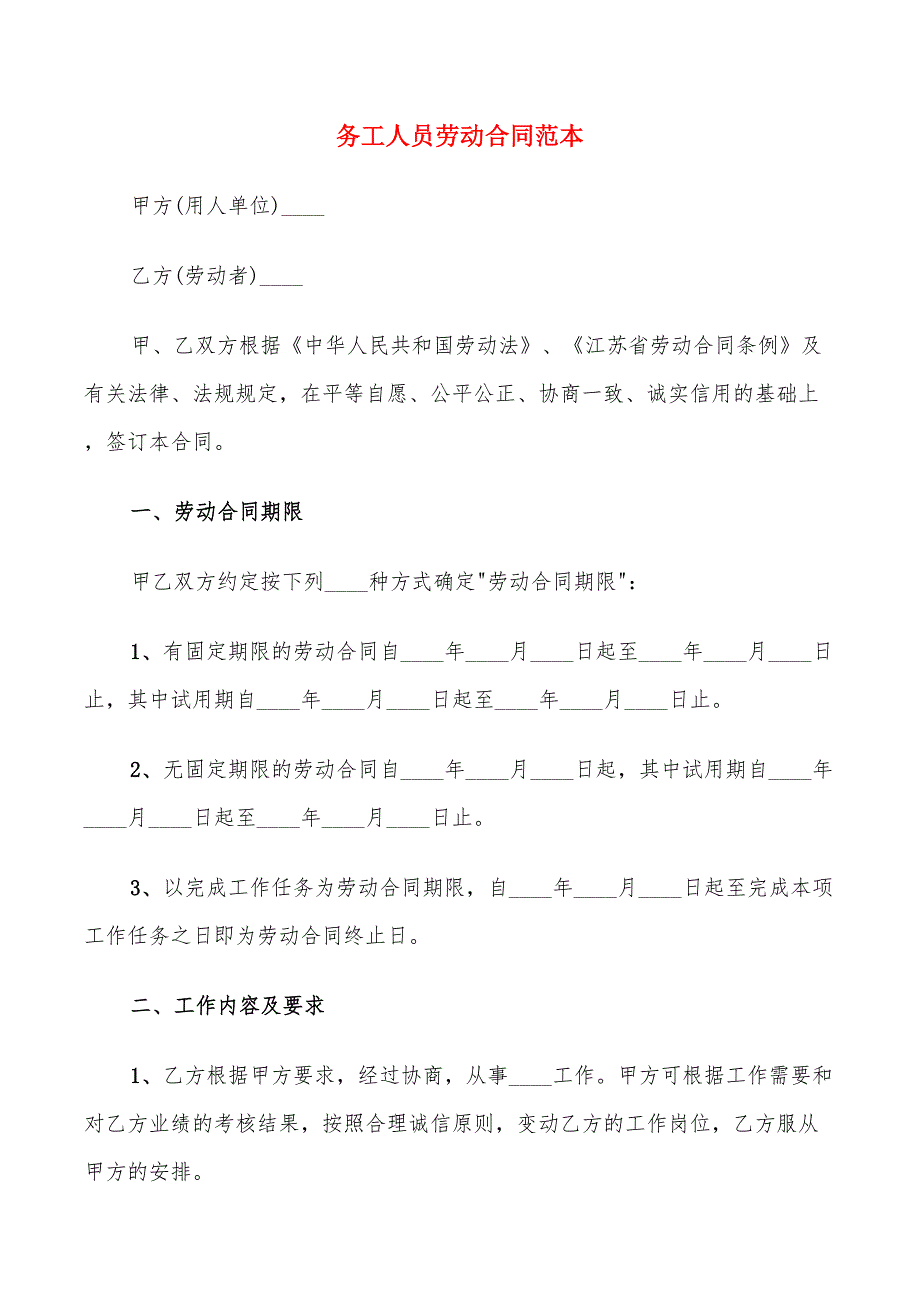 务工人员劳动合同范本
甲方(用人单位)____
乙方(劳动者)____
甲、乙双方根据《中华人民共和国劳动法》、《江苏省劳动合同条例》及
有关法律、法规规定，在平等自愿、公平公正、协商一致、诚实信用的基础上
，签订本合同。
一、劳动合同期限
甲乙双方约定按下列____种方式确定"劳动合同期限"：
1、有固定期限的劳动合同自____年____月____日起至____年____月____日
止，其中试用期自____年____月____日起至____年____月____日止。
2、无固定期限的劳动合同自____年____月____日起，其中试用期自____年
____月____日起至____年____月____日止。
3、以完成工作任务为劳动合同期限，自____年____月____日起至完成本项
工作任务之日即为劳动合同终止日。
二、工作内容及要求
1、乙方根据甲方要求，经过协商，从事____工作。甲方可根据工作需要和
对乙方业绩的考核结果，按照合理诚信原则，变动乙方的工作岗位，乙方服从
甲方的安排。